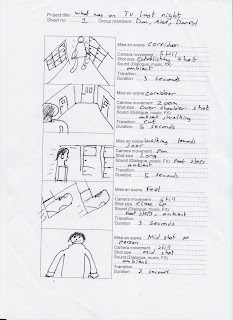 Project title: what was on TV last night
Sheet no: 2 Group members: Dan, Alex, Darryl
Mise en scene corridor
Camera movement: still
Shot size establishing shot
Sound (Dialogue, music, FX)
ambient
Transition:
Duration: 3 seconds
Mise en scene: corridoor
Camera movement: zoom
Shot size: over shoulder shot
Sound (Dialogue, music, FX)
ambient, walking
Transition: cut
Duration: 5 seconds
Mise en scene: walking towards
door
Camera movement: Pan
Shot size: Long
Sound (Dialogue, music, FX): foot steps
ambient
Transition:
Duration: 5 seconds
Mise en scene: feet
Camera movement: still
Shot size: close up
Sound (Dialogue, music, FX)
foot steps, ambient
Transition:
Duration: 3 seconds
Mise en scene: Mid shot of
person
Camera movement: still
Shot size: Mid shot
Sound (Dialogue, music, FX)
ambient
Transition:
Duration: 2 seconds